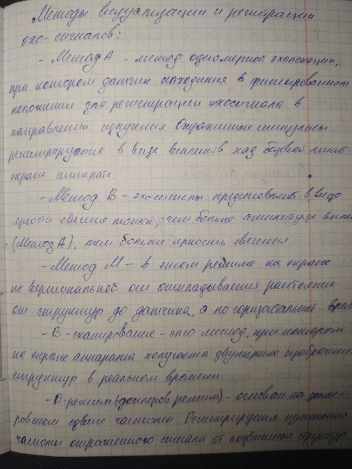 Методы визуализации и регистрации
эхо-сигналов:
- Метод А - метод одномерной эхолокации,
при котором датчик находится в фиксированном
положении для регистрации эхосигнала в
направлении излучения. Отраженные импульсы
регистрируются в виде всплесков над базовой линией
экрана аппарата.
- Метод В - эхосигналы представляют в виде
яркости свечения точки, чем больше амплитуда
(Метод А), тем больше яркость свечения
- Метод М - в этом режиме на экране
по вертикальной оси откладывается расстояние
от структур до датчика, а по горизонтальной - время
- В-сканирование - это метод, при котором
на экране аппарата получают двухмерное изображение
структур в реальном времени
- D режим (доплеров режим) - основан на допле-
ровском сдвиге частоты. Регистрируется изменение
частоты отраженного сигнала от подвижных структур